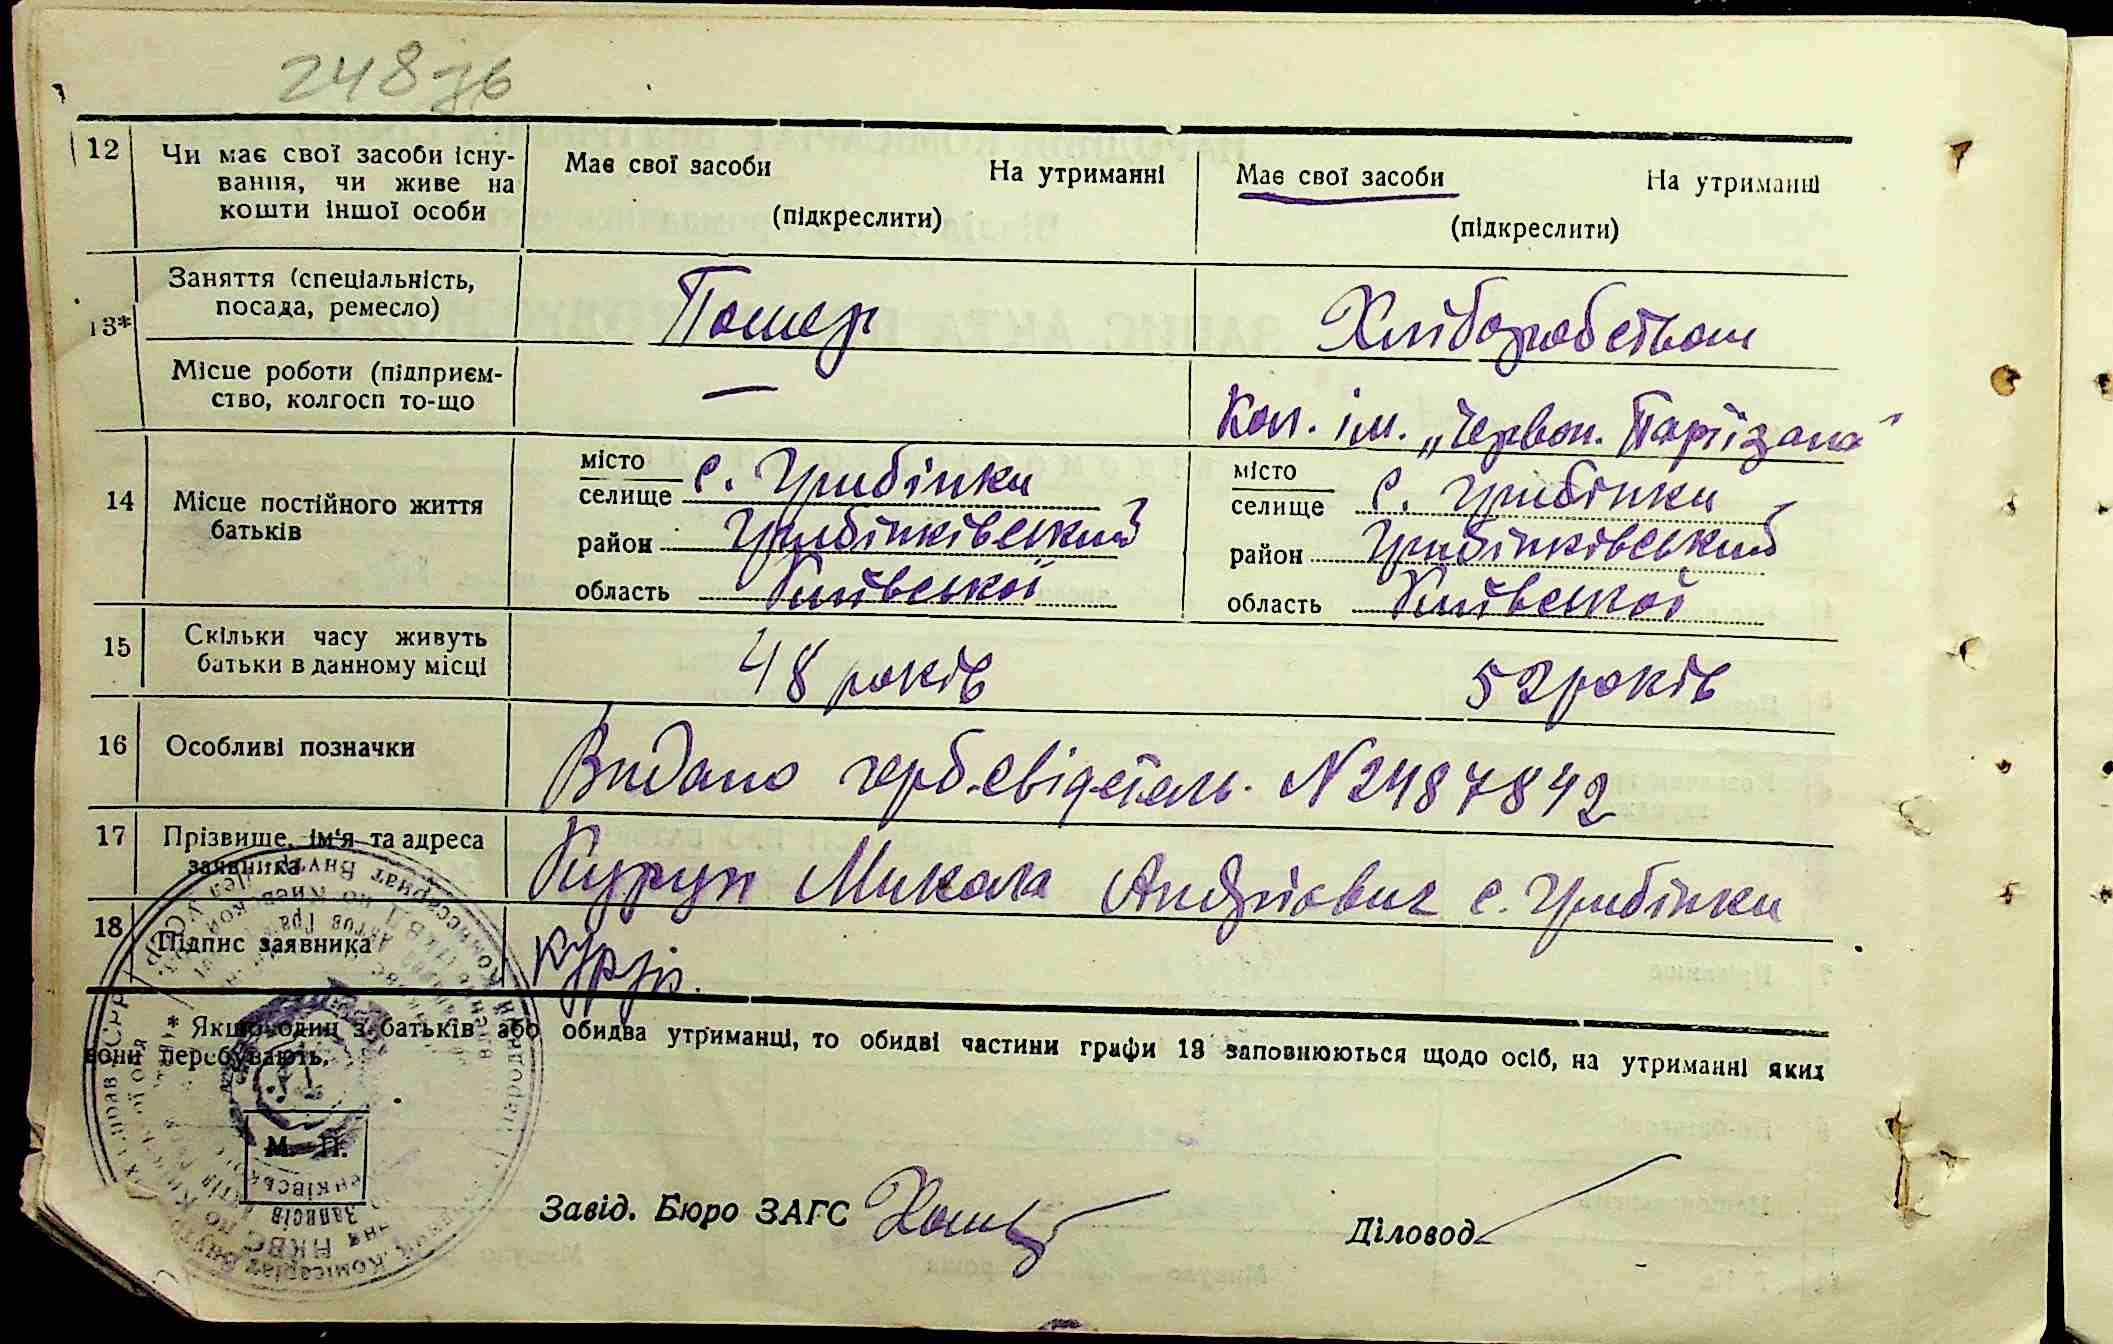 12
Чи має свої засоби існу-
вання, чи живе на
кошти іншої особи
Має свої засоби На утриманні
(підкреслити)
Має свої засоби На утриманні
(підкреслити)
13*
Заняття (спеціальність,
посада, ремесло)
Помер
Хліборобством
Місце роботи (підприєм-
ство, колгосп то-що
—
Кол. ім. „Червон. Партізана"
14
Місце постійного життя
батьків
місто
селище с. Гребінки
район Гребінківський
область Київської
місто
селище с. Гребінки
район Гребінківський
область Київської
15
Скільки часу живуть
батьки в данному місці
48 років
52 років
16
Особливі позначки
Видано герб. свідетель. N 2487842
17
Прізвище, ім'я та адреса
заявника
Микола Андрійович с. Гребінки
18
Підпис заявника
* Якщо один з батьків або обидва утриманці, то обидві частини графи 13 заповнюються щодо осіб, на утриманні яких
вони перебувають.
М. П.
Завід. Бюро ЗАГС
Діловод